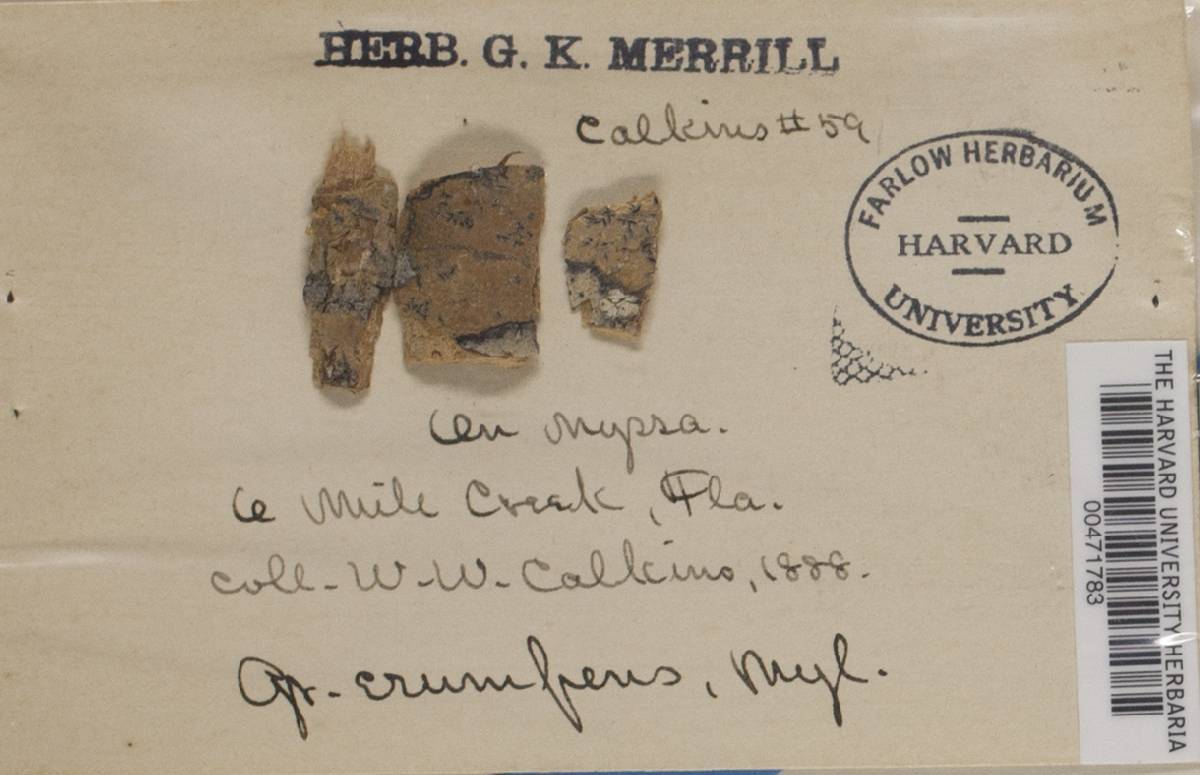 HERB. G. K. MERRILL
Calkins #59
FARLOW HERBARIUM
HARVARD
UNIVERSITY
On Nyssa.
6 Mile Creek, Fla.
coll. W. W. Calkins, 1888.
Gr. erumpens, Nyl.
THE HARVARD UNIVERSITY HERBARIA
00471783